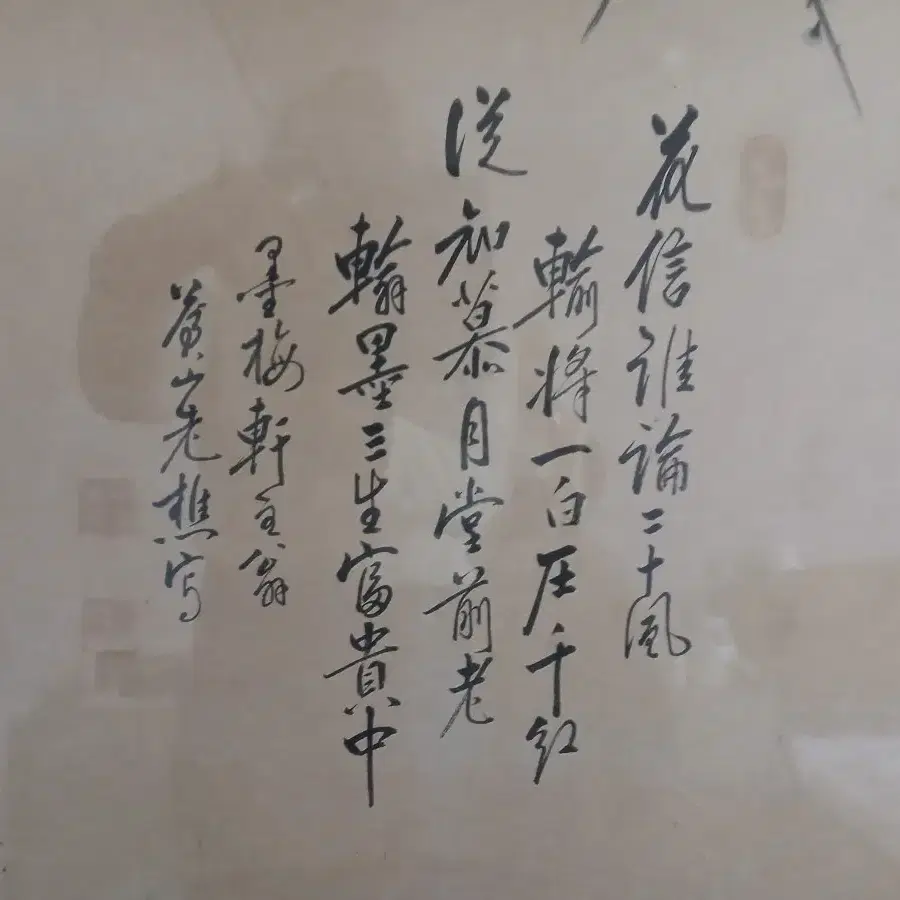 花信谁論二十風
輸将一白压千红
従知慕月堂前老
翰墨三生富貴中
墨梅軒主翁
黄山老樵写